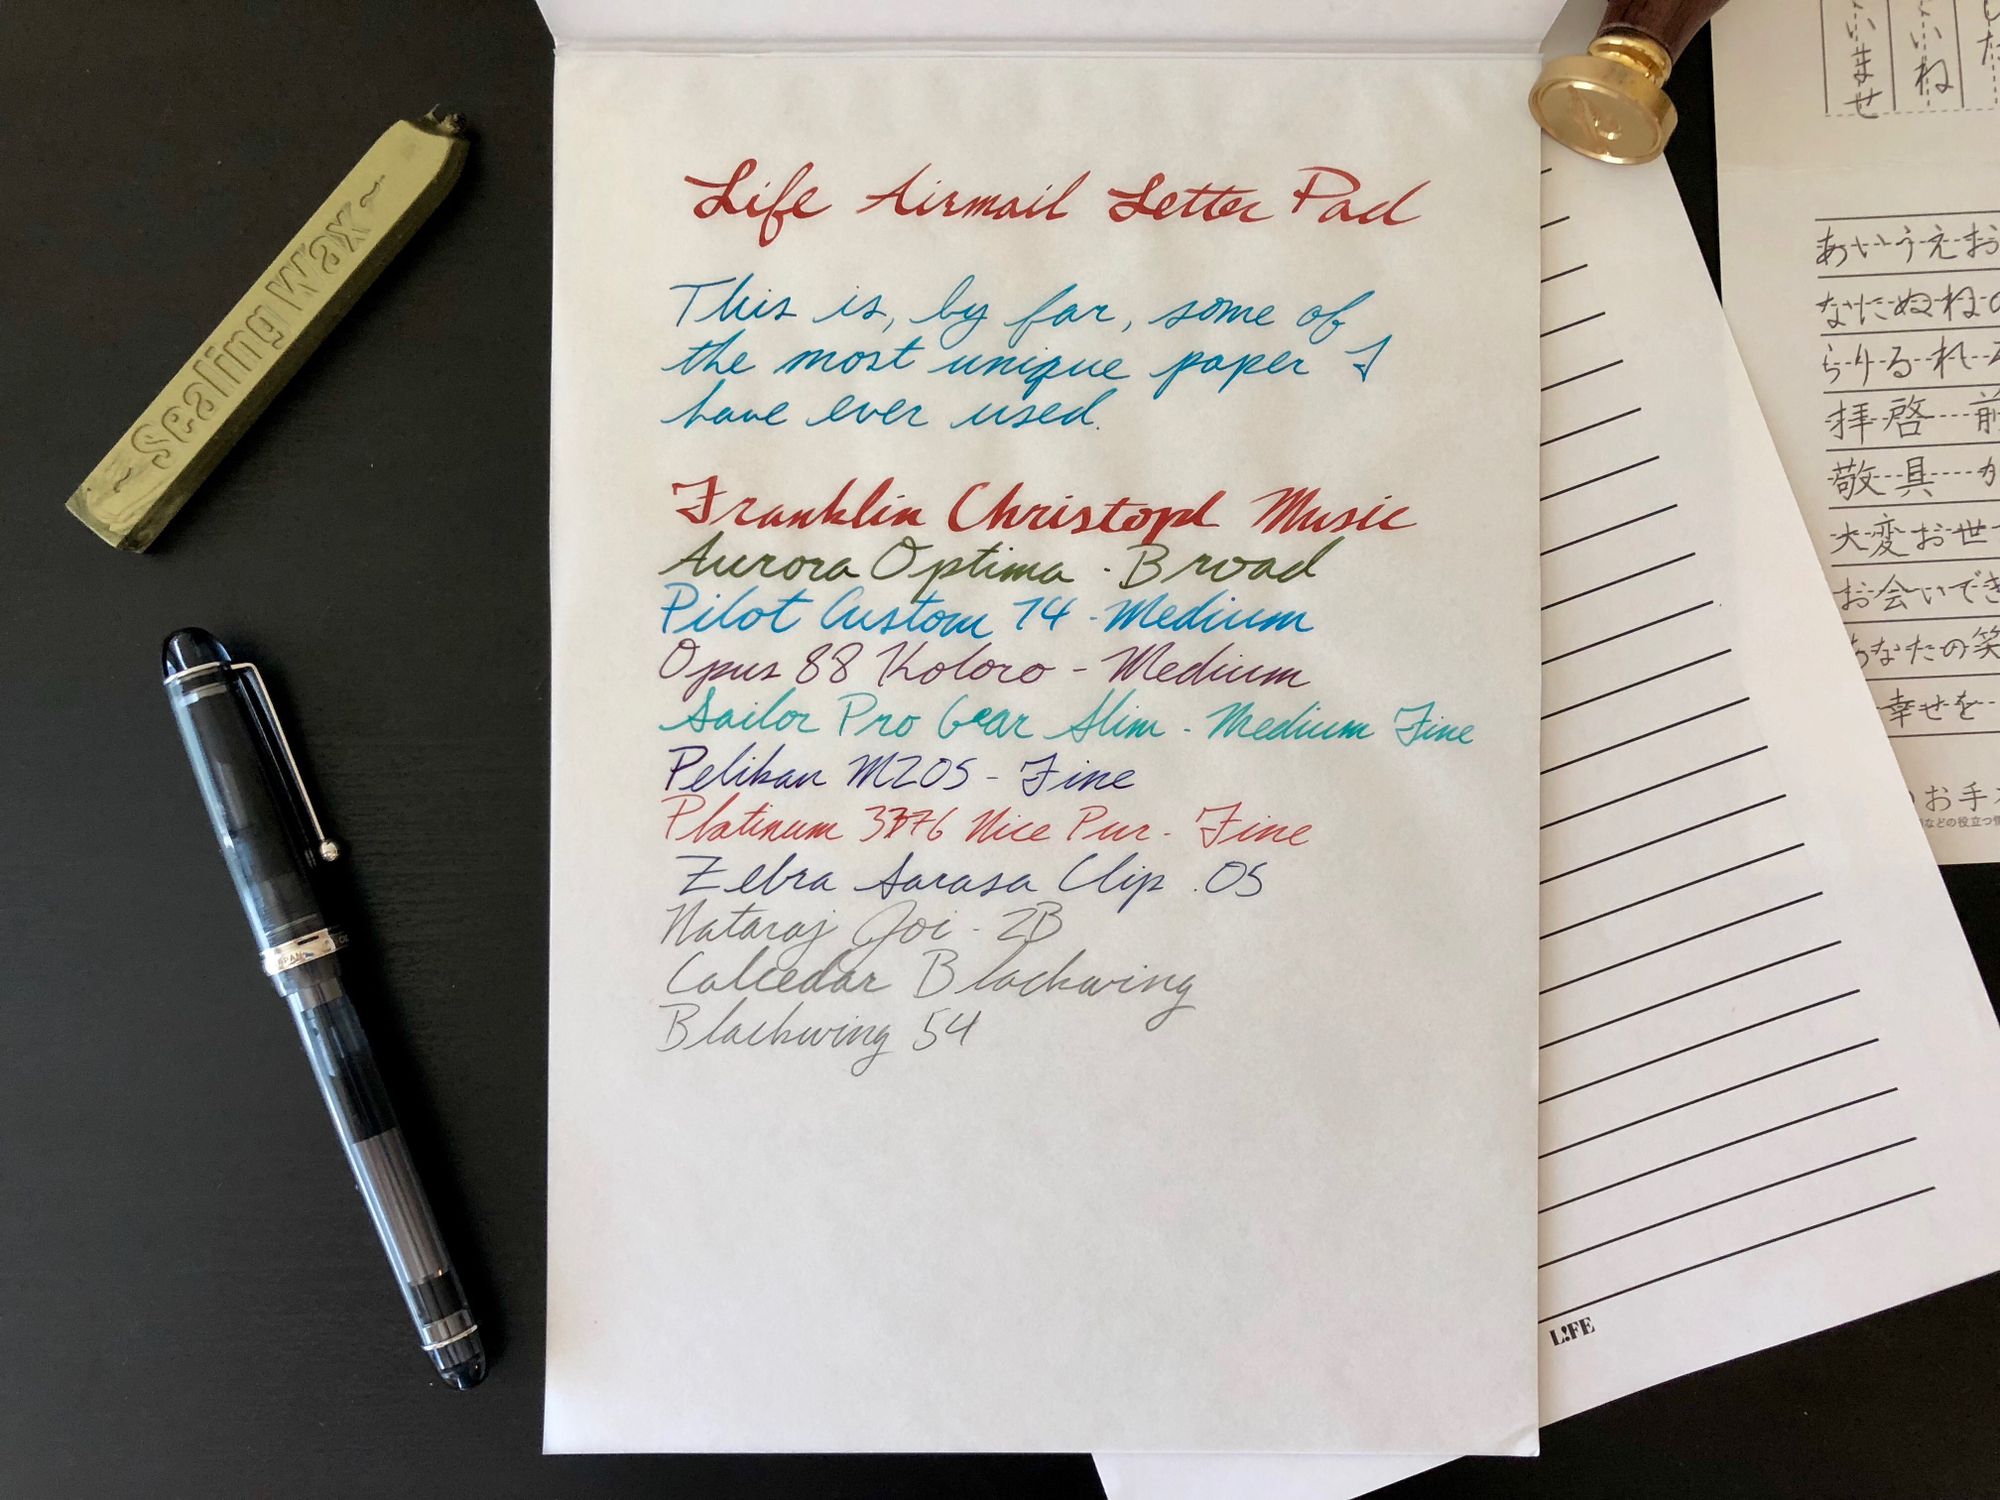 Life Airmail Letter Pad
This is, by far, some of
the most unique paper I
have ever used.
Franklin Christoph Music
Aurora Optima - Broad
Pilot Custom 74 - Medium
Opus 88 Koloro - Medium
Sailor Pro Gear Slim - Medium Fine
Pelikan M205 - Fine
Platinum 3776 Nice Pur - Fine
Zebra Sarasa Clip .05
Nataraj Joi - 2B
Calcedar Blackwing
Blackwing 54
~ Sealing Wax ~
L!FE
いませ
いね
た
あいうえお
なにぬねの
らりるれ
拝啓 前
敬具 か
大変お世
お会いでき
あなたの笑
幸せを
お手
などの役立つ情